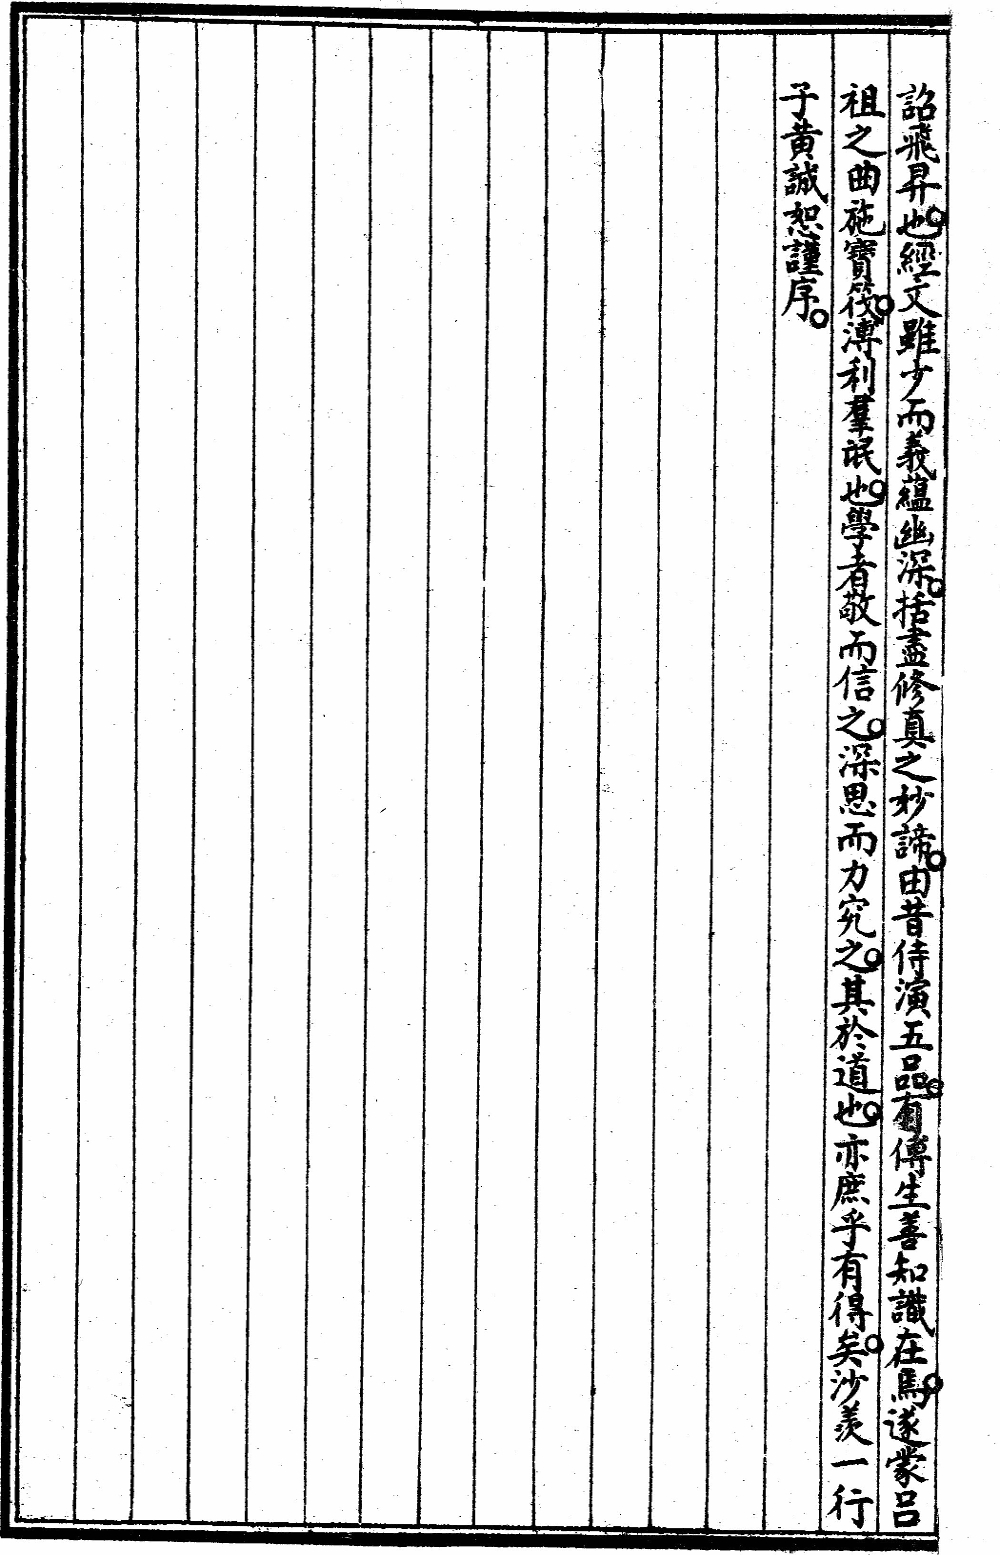 詔飛昇也。經文雖少而義蘊幽深。括盡修真之妙諦。由昔侍演五品。有傅生善知識在焉。遂蒙呂
祖之曲施寶筏。溥利羣氓也。學者敬而信之。深思而力究之。其於道也。亦庶乎有得矣。沙羨一行
子黄誠恕謹序。